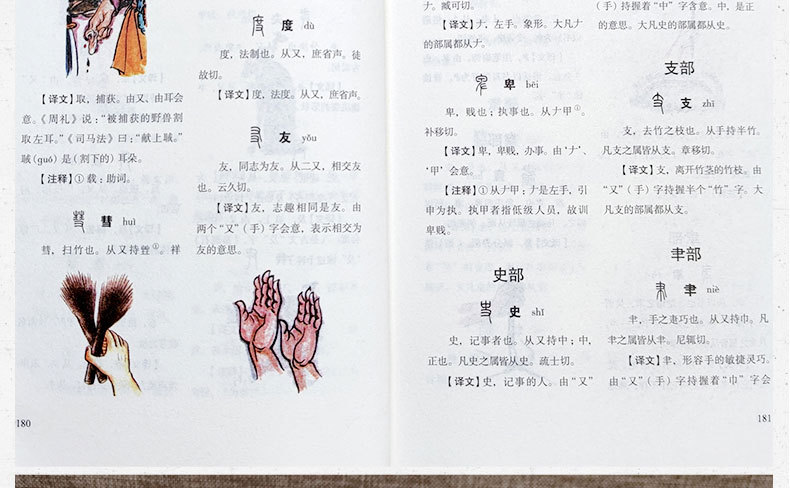 【译文】取，捕获。由又、由耳会
意。《周礼》说：“被捕获的野兽割
取左耳。”《司马法》曰：“献上聝。”
聝(guó)是(割下的)耳朵。
【注释】①载：助词。
彗 huì
彗，扫竹也。从又持䍹①。祥
180
度 dù
度，法制也。从又，庶省声。徒
故切。
【译文】度，法度。从又，庶省声。
友 yǒu
友，同志为友。从二又，相交友
也。云久切。
【译文】友，志趣相同是友。由
两个“又”(手)字会意，表示相交为
友的意思。
𠂇。臧可切。
【译文】𠂇，左手。象形。大凡𠂇
的部属都从𠂇。
卑 bēi
卑，贱也；执事也。从𠂇甲①。
补移切。
【译文】卑，卑贱，办事。由‘𠂇’、
‘甲’会意。
【注释】①从𠂇甲：𠂇是左手，引
申为执。执甲者指低级人员，故训
卑贱。
史部
史 shǐ
史，记事者也。从又持中；中，
正也。凡史之属皆从史。疏士切。
【译文】史，记事的人。由“又”
(手)持握着“中”字会意。中，是正
的意思。大凡史的部属都从史。
支部
支 zhī
支，去竹之枝也。从手持半竹。
凡支之属皆从支。章移切。
【译文】支，离开竹茎的竹枝。由
“又”(手)持握半个“竹”字。大
凡支的部属都从支。
𦘒部
𦘒 niè
𦘒，手之疌巧也。从又持巾。凡
𦘒之属皆从𦘒。尼辄切。
【译文】𦘒，形容手的敏捷灵巧。
由“又”(手)字持握着“巾”字会
181